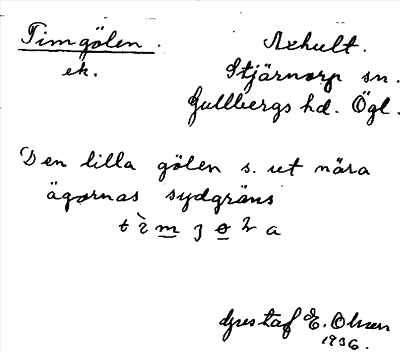 Timgölen.
ek.
Axhult.
Stjärnorp sn.
Gullbergs hd. Ögl.
Den lilla gölen s. ut nära
ägornas sydgräns
Gustaf E. Olsson
1936.